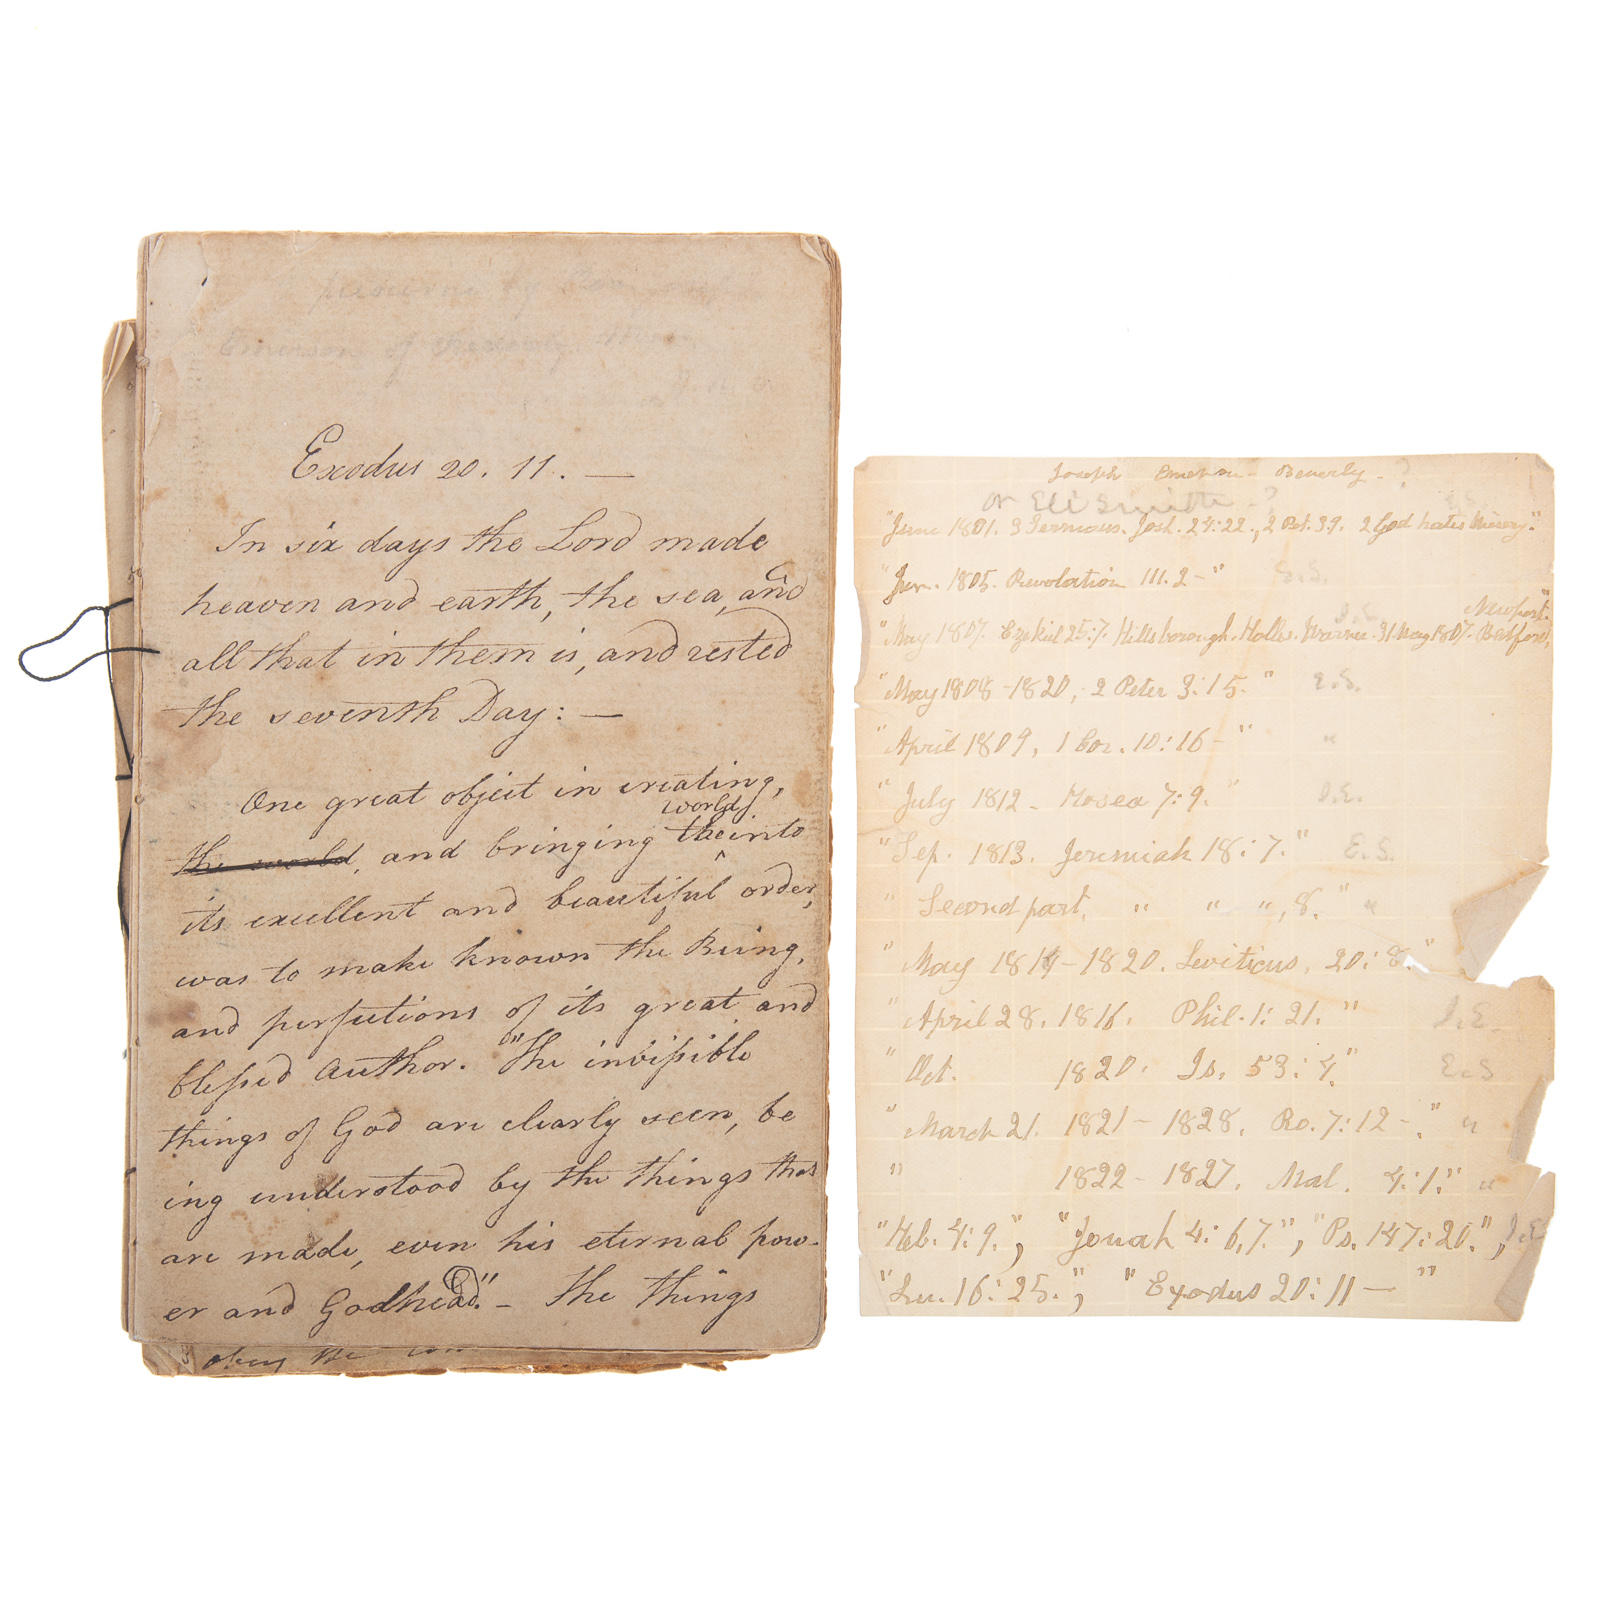 Emerson of
Exodus 20. 11. —
In six days the Lord made
heaven and earth, the sea, and
all that in them is, and rested
the seventh Day: —
One great object in creating,
the world, and bringing the world into
its excellent and beautiful order,
was to make known the Being,
and perfections of its great and
blessed Author. "The invisible
things of God are clearly seen, be
ing understood by the things that
are made, even his eternal pow-
er and Godhead." — The things
obey the
Joseph Emerson - Beverly - ?
or Eli Smith - ?
"June 1801. 3 Sermons. Josh. 24:22., 2 Pet. 3 9. 2 God hates Misery."
"Jan. 1805. Revolation III. 2 —" E.S.
Newport."
"May 1807. Ezekiel 25:7. Hillsborough. Hollis. Warner. 31 May 1807. Bedford,
"May 1808 - 1820, 2 Peter 3:15. " E.S.
"April 1809, 1 Cor. 10:16 — " "
"July 1812 - Hosea 7:9. " J.E.
"Sep. 1813. Jeremiah 18:7." E.S.
" Second part, " " ", 8. " "
" May 1814 - 1820. Leviticus, 20:8."
" April 28. 1816. Phil. 1:21. " J.E.
" Oct. 1820. Is. 53:4." E.S
" March 21. 1821 - 1828. Ro. 7:12 - ." "
" 1822 - 1827. Mal. 4:1." "
"Heb. 4:9.", "Jonah 4:6,7.", "Ps. 147:20.", J.E
"Lu. 16:25.", "Exodus 20:11 — "